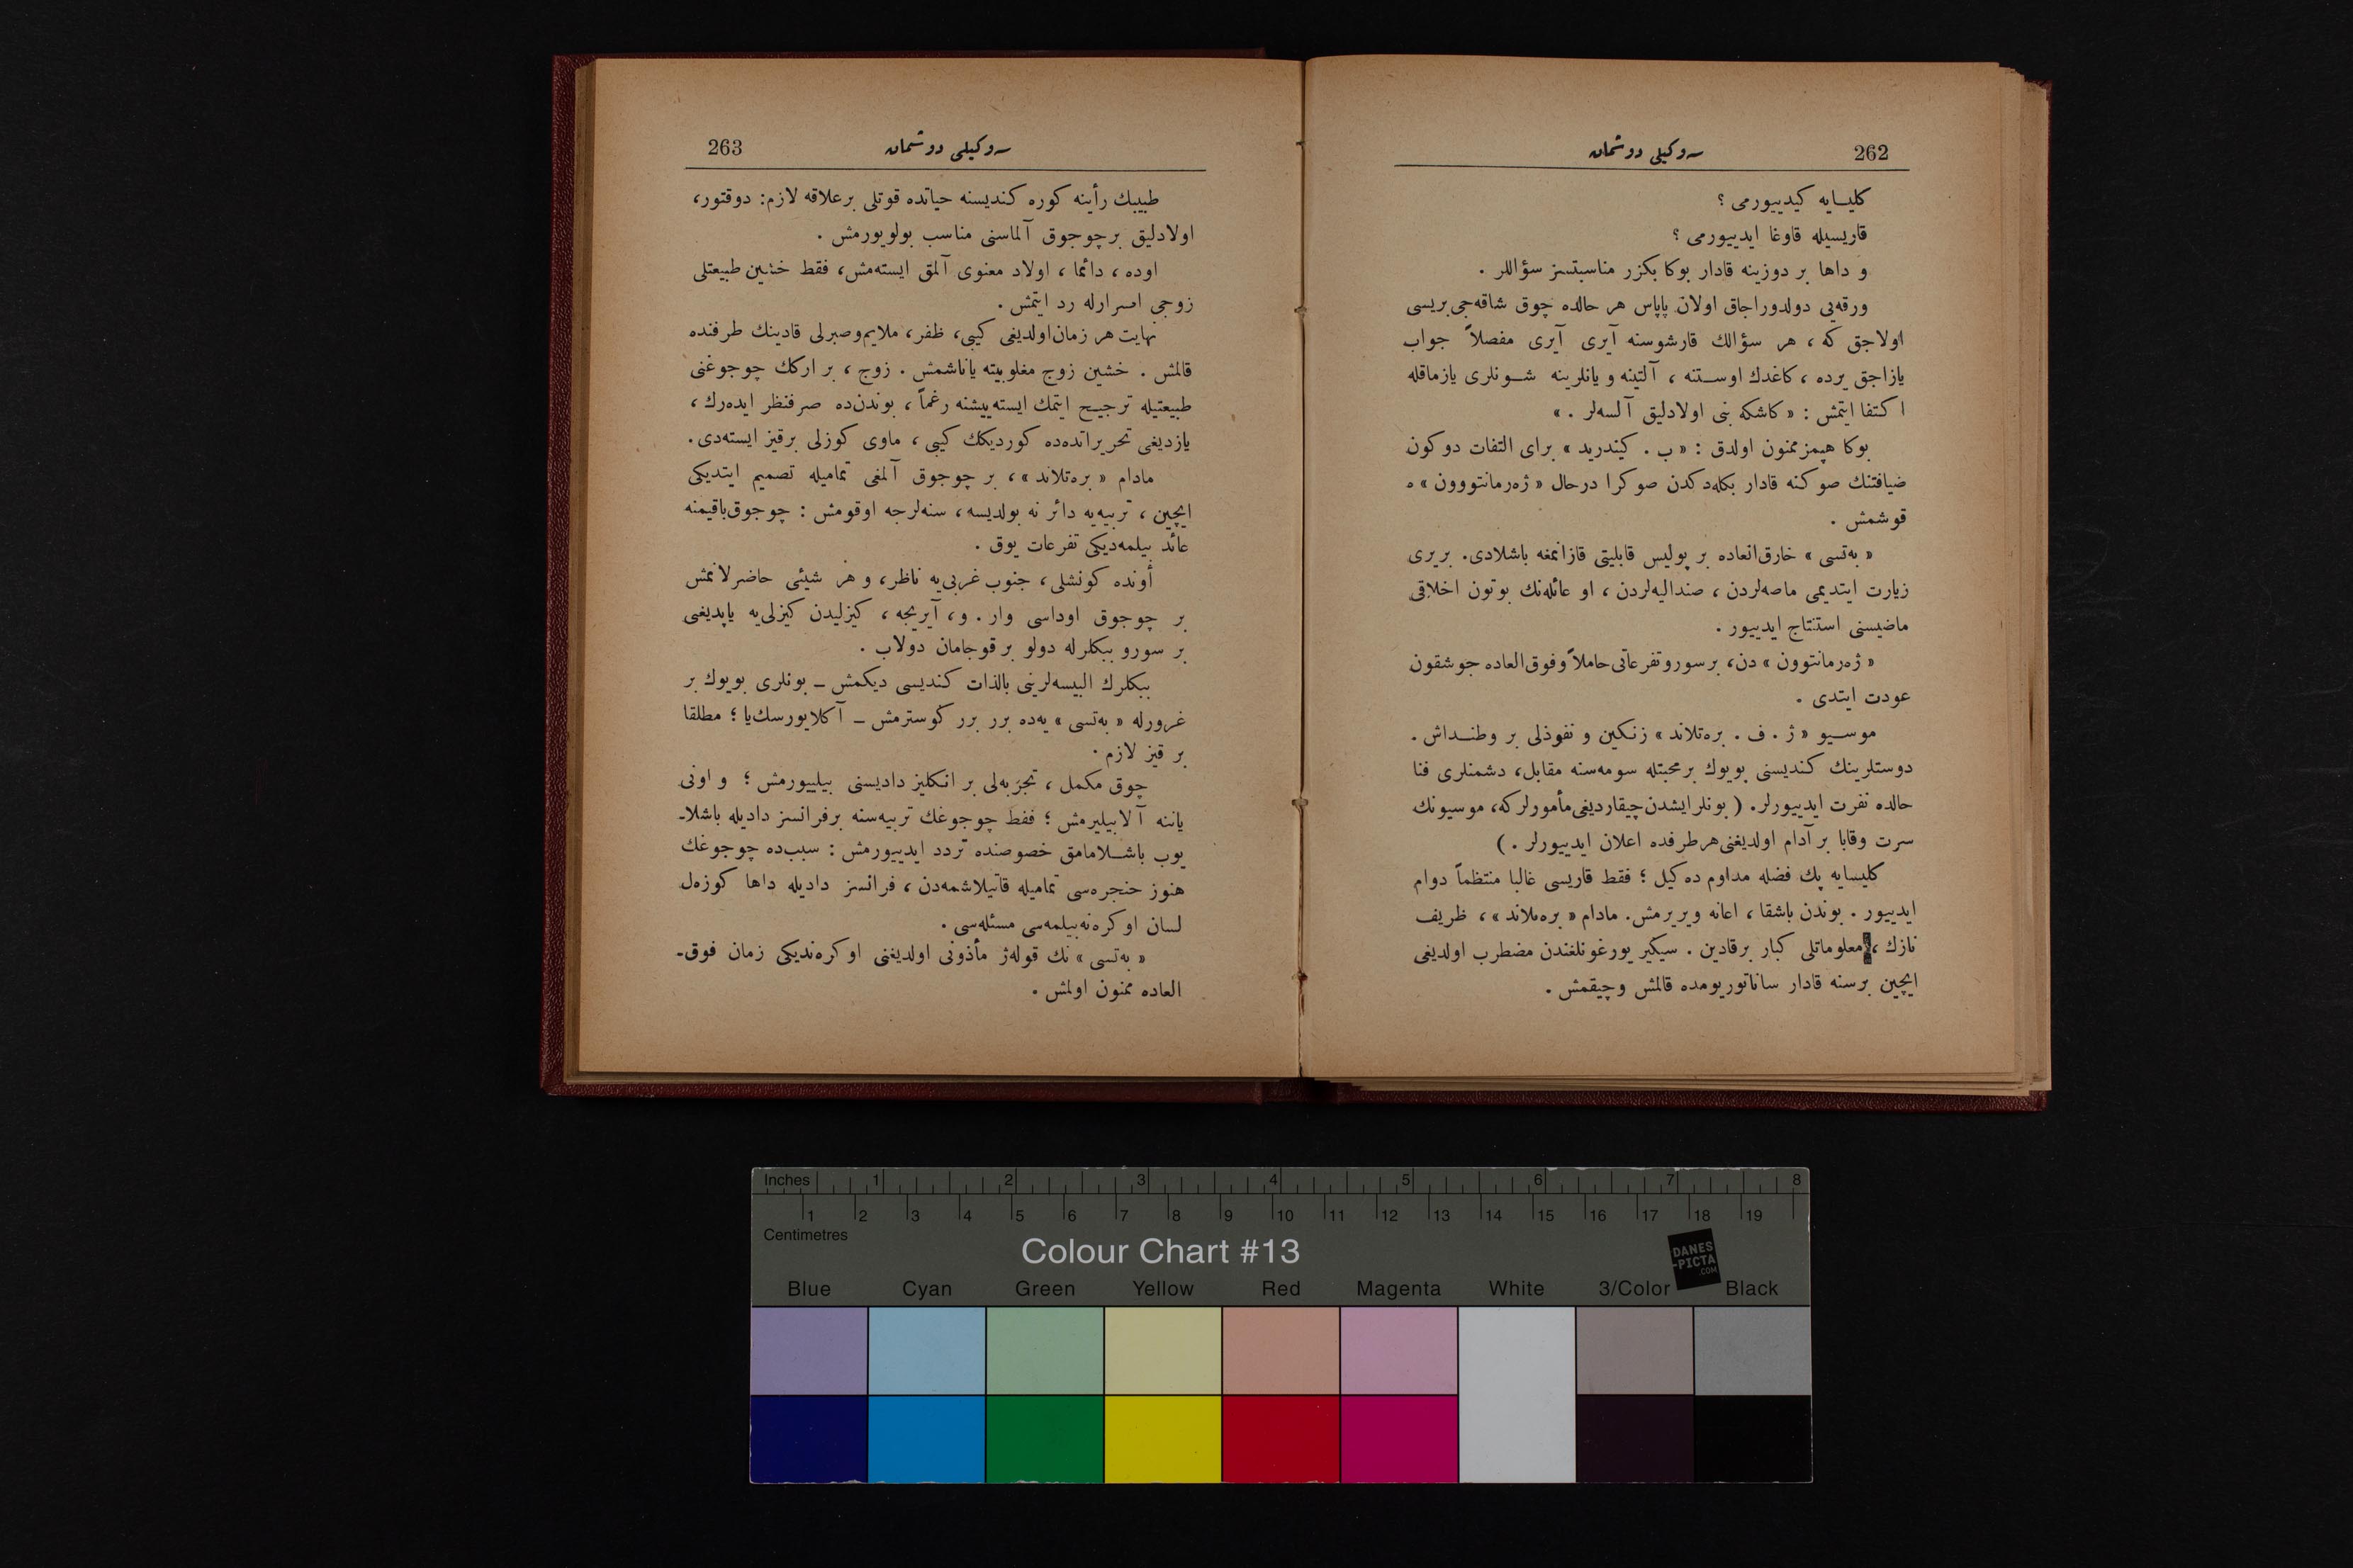 262
سوكيلى دوشمان
كليسايه كيدييورمى ؟
قاريسيله قاوغا ايدييورمى ؟
و داها بر دوزينه قادار بوكا بكزر مناسبتسز سؤاللر .
ورقه‌يى دولدوراجاق اولان پاپاس هر حالده چوق شاقه‌جى بريسى
اولاجق كه ، هر سؤالك قارشوسنه آيرى آيرى مفصلاً جواب
يازاجق يرده ، كاغدك اوستنه ، آلتينه و يانلرينه شونلرى يازماقله
اكتفا ايتمش : « كاشكه بنى اولادليق آلسه‌لر . »
بوكا هپمز ممنون اولدق : « ب . كيندريد » براى التفات دوكون
ضيافتنك صوكنه قادار بكله‌دكدن صوكرا درحال « ژه‌رمانتووون » ه
قوشمش .
« به‌تسى » خارق‌العاده بر پوليس قابليتى قازانمغه باشلادى. بريرى
زيارت ايتديمى ماصه‌لردن ، صنداليه‌لردن ، او عائله‌نك بوتون اخلاقى
ماضيسنى استنتاج ايدييور .
« ژه‌رمانتوون » دن، برسوروتفرعاتى حاملاً وفوق‌العاده جوشقون
عودت ايتدى .
موسيو « ژ . ف . بره‌تلاند » زنكين و نفوذلى بر وطنداش .
دوستلرينك كنديسنى بويوك برمحبتله سومه‌سنه مقابل، دشمنلرى فنا
حالده نفرت ايدييورلر. ( بونلرايشدن چيقارديغى مأمورلركه، موسيونك
سرت وقابا بر آدام اولديغنى هرطرفده اعلان ايدييورلر . )
كليسايه پك فضله مداوم ده‌كيل ؛ فقط قاريسى غالبا منتظماً دوام
ايدييور . بوندن باشقا ، اعانه ويريرمش. مادام « بره‌تلاند »، ظريف
نازك ، معلوماتلى كبار برقادين . سيكير يورغونلغندن مضطرب اولديغى
ايچين برسنه قادار ساناتوريومده قالمش وچيقمش .
263
سوكيلى دوشمان
طبيبك رأينه كوره كنديسنه حياتده قوتلى برعلاقه لازم: دوقتور،
اولادليق برچوجوق آلماسنى مناسب بولويورمش .
اوده ، دائما ، اولاد معنوى آلمق ايسته‌مش، فقط خشين طبيعتلى
زوجى اصرارله رد ايتمش .
نهايت هر زمان اولديغى كيبى، ظفر، ملايم وصبرلى قادينك طرفنده
قالمش . خشين زوج مغلوبيته ياناشمش . زوج ، بر اركك چوجوغنى
طبيعتيله ترجيح ايتمك ايسته‌ييشنه رغماً ، بوندن‌ده صرفنظر ايده‌رك ،
يازديغى تحريراتده‌ده كورديكك كيبى ، ماوى كوزلى برقيز ايسته‌دى.
مادام « بره‌تلاند »، بر چوجوق آلمغى تماميله تصميم ايتديكى
ايچين ، تربيه‌يه دائر نه بولديسه، سنه‌لرجه اوقومش : چوجوق‌باقيمنه
عائد بيلمه‌ديكى تفرعات يوق .
أونده كونشلى ، جنوب غربى‌يه ناظر، و هر شيئى حاضرلانمش
بر چوجوق اوداسى وار . و، آيريجه ، كيزليدن كيزلى‌يه ياپديغى
بر سورو ببكلرله دولو بر قوجامان دولاب .
ببكلرك البيسه‌لرينى بالذات كنديسى ديكمش ـ بونلرى بويوك بر
غرورله « به‌تسى » يه‌ده برر برر كوسترمش ـ آكلايورسك‌يا ؛ مطلقا
بر قيز لازم .
چوق مكمل ، تجربه‌لى بر انكليز داديسنى بيلييورمش ؛ و اونى
ياننه آلابيليرمش ؛ فقط چوجوغك تربيه‌سنه برفرانسز داديله باشلا-
يوب باشلامامق خصوصنده تردد ايدييورمش : سبب‌ده چوجوغك
هنوز حنجره‌سى تماميله قاتيلاشمه‌دن ، فرانسز داديله داها كوزه‌ل
لسان اوكره‌نه‌بيلمه‌سى مسئله‌سى .
« به‌تسى » نك قوله‌ژ مأذونى اولديغنى اوكره‌نديكى زمان فوق-
العاده ممنون اولمش .
Inches 1 2 3 4 5 6 7 8
1 2 3 4 5 6 7 8 9 10 11 12 13 14 15 16 17 18 19
Centimetres
Colour Chart #13
DANES
-PICTA
.COM
Blue Cyan Green Yellow Red Magenta White 3/Color Black